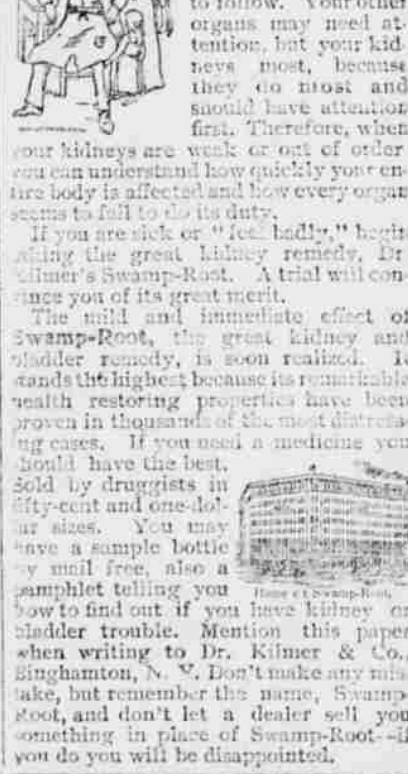 to follow. Your other
organs may need at-
tention, but your kid-
neys most, because
they do most and
should have attention
first. Therefore, when
your kidneys are weak or out of order
you can understand how quickly your en-
tire body is affected and how every organ
seems to fail to do its duty.
If you are sick or "feel badly," begin
taking the great kidney remedy, Dr.
Kilmer's Swamp-Root. A trial will con-
vince you of its great merit.
The mild and immediate effect of
Swamp-Root, the great kidney and
bladder remedy, is soon realized. It
stands the highest because its remarkable
health restoring properties have been
proven in thousands of the most distress-
ing cases. If you need a medicine you
should have the best.
Sold by druggists in
fifty-cent and one-dol-
lar sizes. You may
have a sample bottle
by mail free, also a
pamphlet telling you
Home of Swamp-Root.
how to find out if you have kidney or
bladder trouble. Mention this paper
when writing to Dr. Kilmer & Co.,
Binghamton, N. Y. Don't make any mis-
take, but remember the name, Swamp-
Root, and don't let a dealer sell you
something in place of Swamp-Root--if
you do you will be disappointed.